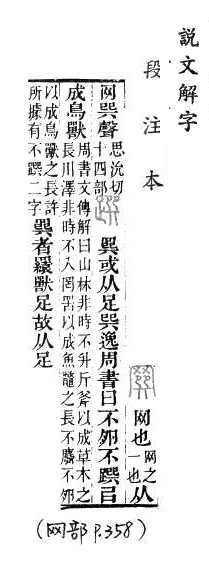 說文解字
段注本
网也网之一也从
网巽聲思沇切十四部
巽或从足巽逸周書曰不卵不㠯
成鳥獸周書文傳解曰山林非時不升斤斧以成草木之
長川澤非時不入罔罟以成魚鼈之長不麛不卵
以成鳥獸之長許
所據有不二字
巽者繯獸足故从足
(网部 P.358)